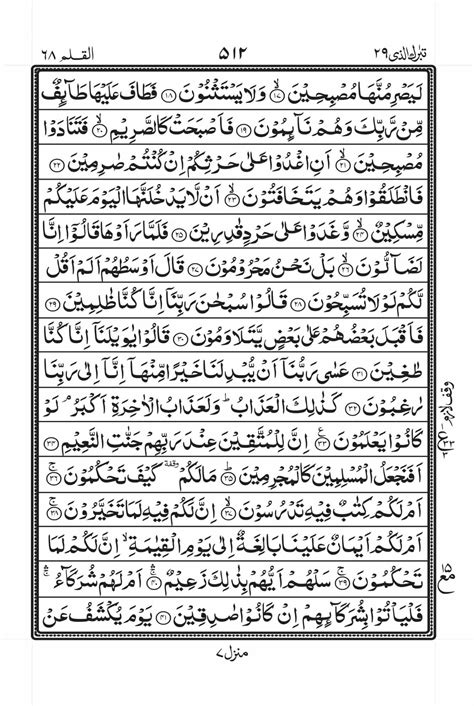 تبٰرك الذی ٢٩
٥١٢
القلم ٦٨
لَيَصْرِمُنَّهَا مُصْبِحِيْنَ ۙ﴿١٧﴾ وَلَا يَسْتَثْنُوْنَ ﴿١٨﴾ فَطَافَ عَلَيْهَا طَآئِفٌ
مِّنْ رَّبِّكَ وَهُمْ نَآئِمُوْنَ ﴿١٩﴾ فَاَصْبَحَتْ كَالصَّرِيْمِ ۙ﴿٢٠﴾ فَتَنَادَوْا
مُصْبِحِيْنَ ۙ﴿٢١﴾ اَنِ اغْدُوْا عَلٰى حَرْثِكُمْ اِنْ كُنْتُمْ صٰرِمِيْنَ ﴿٢٢﴾
فَانْطَلَقُوْا وَهُمْ يَتَخَافَتُوْنَ ۙ﴿٢٣﴾ اَنْ لَّا يَدْخُلَنَّهَا الْيَوْمَ عَلَيْكُمْ
مِّسْكِيْنٌ ۙ﴿٢٤﴾ وَّغَدَوْا عَلٰى حَرْدٍ قٰدِرِيْنَ ﴿٢٥﴾ فَلَمَّا رَاَوْهَا قَالُوْٓا اِنَّا
لَضَآلُّوْنَ ۙ﴿٢٦﴾ بَلْ نَحْنُ مَحْرُوْمُوْنَ ﴿٢٧﴾ قَالَ اَوْسَطُهُمْ اَلَمْ اَقُلْ
لَّكُمْ لَوْلَا تُسَبِّحُوْنَ ﴿٢٨﴾ قَالُوْا سُبْحٰنَ رَبِّنَآ اِنَّا كُنَّا ظٰلِمِيْنَ ﴿٢٩﴾
فَاَقْبَلَ بَعْضُهُمْ عَلٰى بَعْضٍ يَّتَلَاوَمُوْنَ ﴿٣٠﴾ قَالُوْا يٰوَيْلَنَآ اِنَّا كُنَّا
طٰغِيْنَ ﴿٣١﴾ عَسٰى رَبُّنَآ اَنْ يُّبْدِلَنَا خَيْرًا مِّنْهَآ اِنَّآ اِلٰى رَبِّنَا
رٰغِبُوْنَ ﴿٣٢﴾ كَذٰلِكَ الْعَذَابُ ؕ وَلَعَذَابُ الْاٰخِرَةِ اَكْبَرُ ۘ لَوْ
كَانُوْا يَعْلَمُوْنَ ﴿٣٣﴾ اِنَّ لِلْمُتَّقِيْنَ عِنْدَ رَبِّهِمْ جَنّٰتِ النَّعِيْمِ ﴿٣٤﴾
اَفَنَجْعَلُ الْمُسْلِمِيْنَ كَالْمُجْرِمِيْنَ ؕ﴿٣٥﴾ مَا لَكُمْ وقفة كَيْفَ تَحْكُمُوْنَ ۚ﴿٣٦﴾
اَمْ لَكُمْ كِتٰبٌ فِيْهِ تَدْرُسُوْنَ ۙ﴿٣٧﴾ اِنَّ لَكُمْ فِيْهِ لَمَا تَخَيَّرُوْنَ ۚ﴿٣٨﴾
اَمْ لَكُمْ اَيْمَانٌ عَلَيْنَا بَالِغَةٌ اِلٰى يَوْمِ الْقِيٰمَةِ ۙ اِنَّ لَكُمْ لَمَا
تَحْكُمُوْنَ ۚ﴿٣٩﴾ سَلْهُمْ اَيُّهُمْ بِذٰلِكَ زَعِيْمٌ ۚ﴿٤٠﴾ اَمْ لَهُمْ شُرَكَآءُ ۚ
فَلْيَاْتُوْا بِشُرَكَآئِهِمْ اِنْ كَانُوْا صٰدِقِيْنَ ﴿٤١﴾ يَوْمَ يُكْشَفُ عَنْ
وقف لازم
منزل ٧